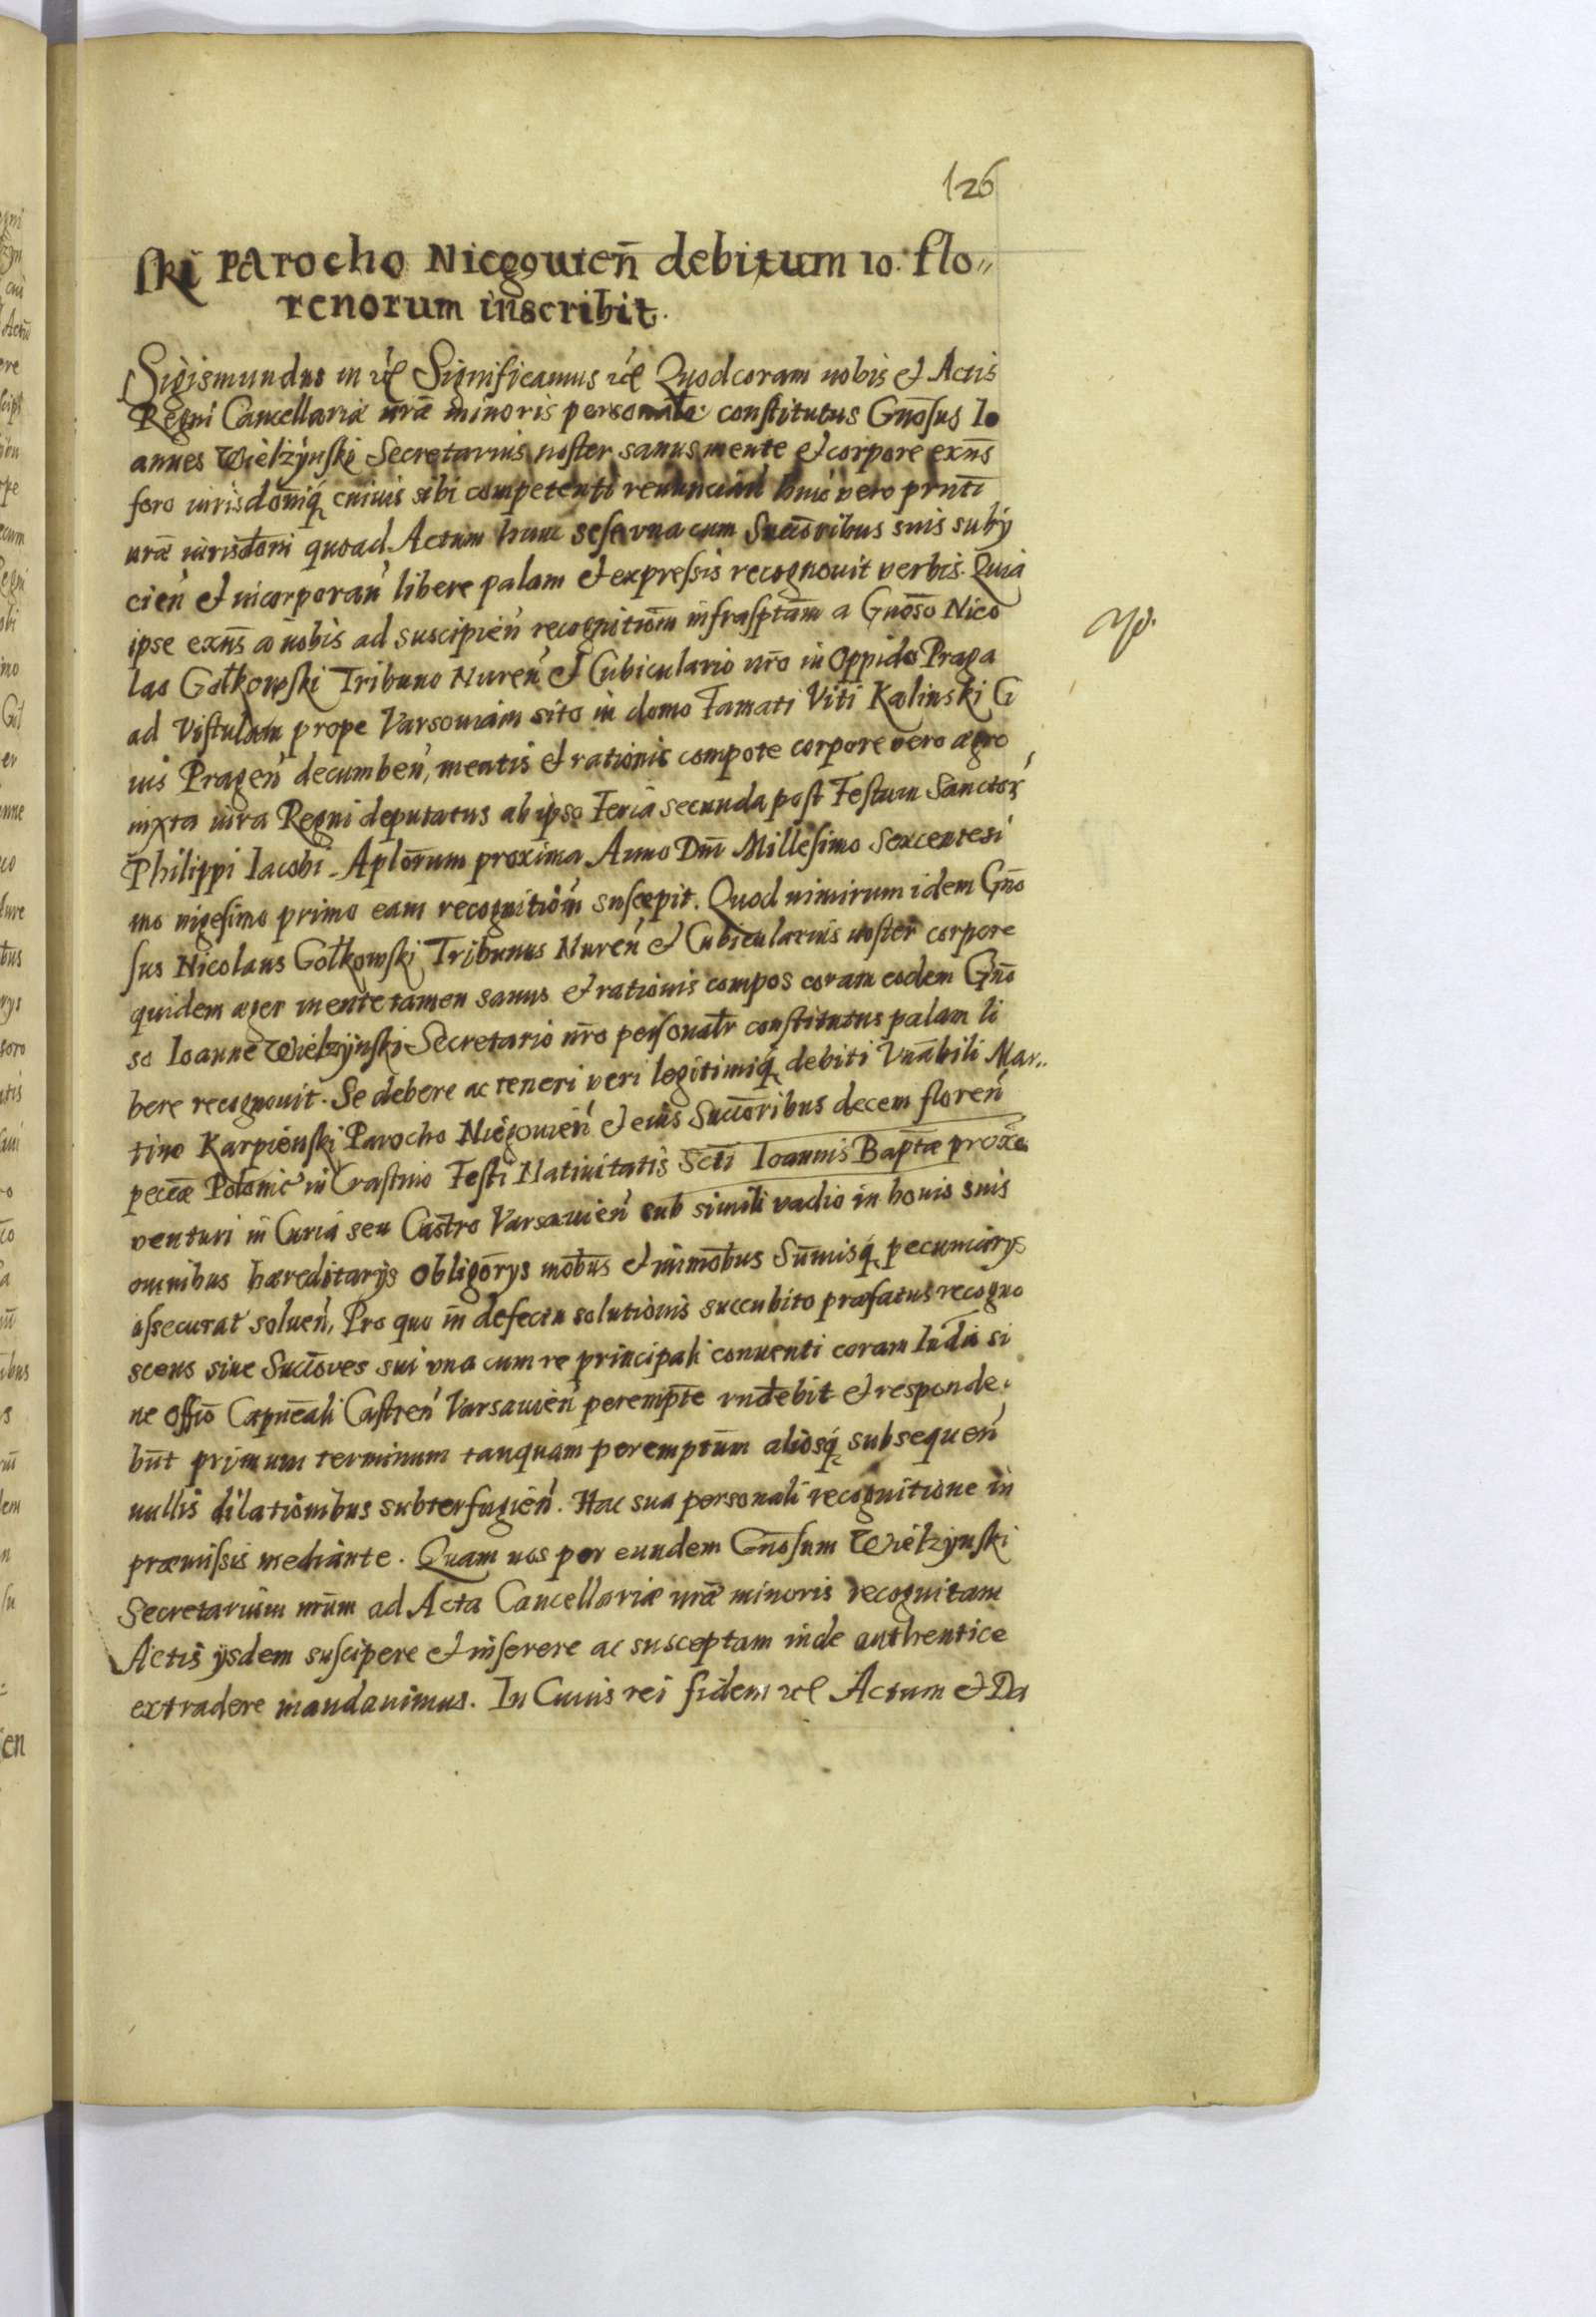 126
ski Parocho Niegouien̄ debitum 10. flo„
renorum inscribit.
Sigismundus III etc Significamus etc Quod coram nobis et Actis
Regni Cancellariæ nr̄æ minoris personalr̄ constitutus Gnōsus Io
annes Wiełżyński Secretarius noster sanus mente et corpore exn̄s
foro iurisdōniq, cuiuis sibi competenti renuncian̄ huic vero prn̄ti
nr̄æ iurisdōni quoad Actum hunc sese vna cum Succ̄oribus suis subij
cien̄ et incorporan̄ libere palam et expressis recognouit verbis. Quia
ipse exn̄s a nobis ad suscipien̄ recognitiōm infrasptām a Gnōso Nico
lao Gołkowski Tribuno Nuren̄ et Cubiculario nr̄o in Oppido Praga
ad Vistulam prope Varsouiam sito in domo Famati Viti Kalinski Ci
uis Pragen̄ decumben̄, mentis et rationis compote corpore vero ægro
iuxta iura Regni deputatus ab ipso Feria secunda post Festum Sanctor̄
Philippi Iacobi Aplōrum proxima Anno Dn̄i Millesimo Sexcentesi
mo uigesimo primo eam recognitiōm suscepit. Quod nimirum idem Gnō
sus Nicolaus Gołkowski Tribunus Nuren̄ et Cubicularius noster corpore
quidem æger mente tamen sanus et rationis compos coram eodem Gnō
so Ioanne Wiełżyński Secretario nr̄o personalr̄ constitutus palam li
bere recognouit. Se debere ac teneri veri legitimiq, debiti Vnābili Mar..
tino Karpieński Parocho Niegouien̄ et eius Succ̄oribus decem floren̄
pecc̄æ Polonic̄ in Crastino Festi Natiuitatis Scti Ioannis Baptæ proxē
venturi in Curia seu Castro Varsauien̄ sub simili vadio in bonis suis
omnibus hæreditarijs obligōrys mobūs et immobūs Sum̄isq, pecuniarys
assecurat soluen̄, Pro quo in defectu solutionis succubito præfatus recogno
scens siue Succ̄ores sui vna cum re principali conuenti coram Iudō si
ne offīo Capnēali Castren̄ Varsauien̄ perempt̄e rndēbit et responde.
būt primum terminum tanquam peremptūm aliosq, subsequen̄
nullis dilationibus subterfugien̄. Hac sua personali recognitione in
præmissis mediante. Quam nos per eundem Gnōsum Wiełżyński
Secretarium nr̄um ad Acta Cancellariæ nr̄æ minoris recognitam
Actis ijsdem suscipere et inserere ac susceptam inde authentice
extradere mandauimus. In Cuius rei fidem etc Actum et Da